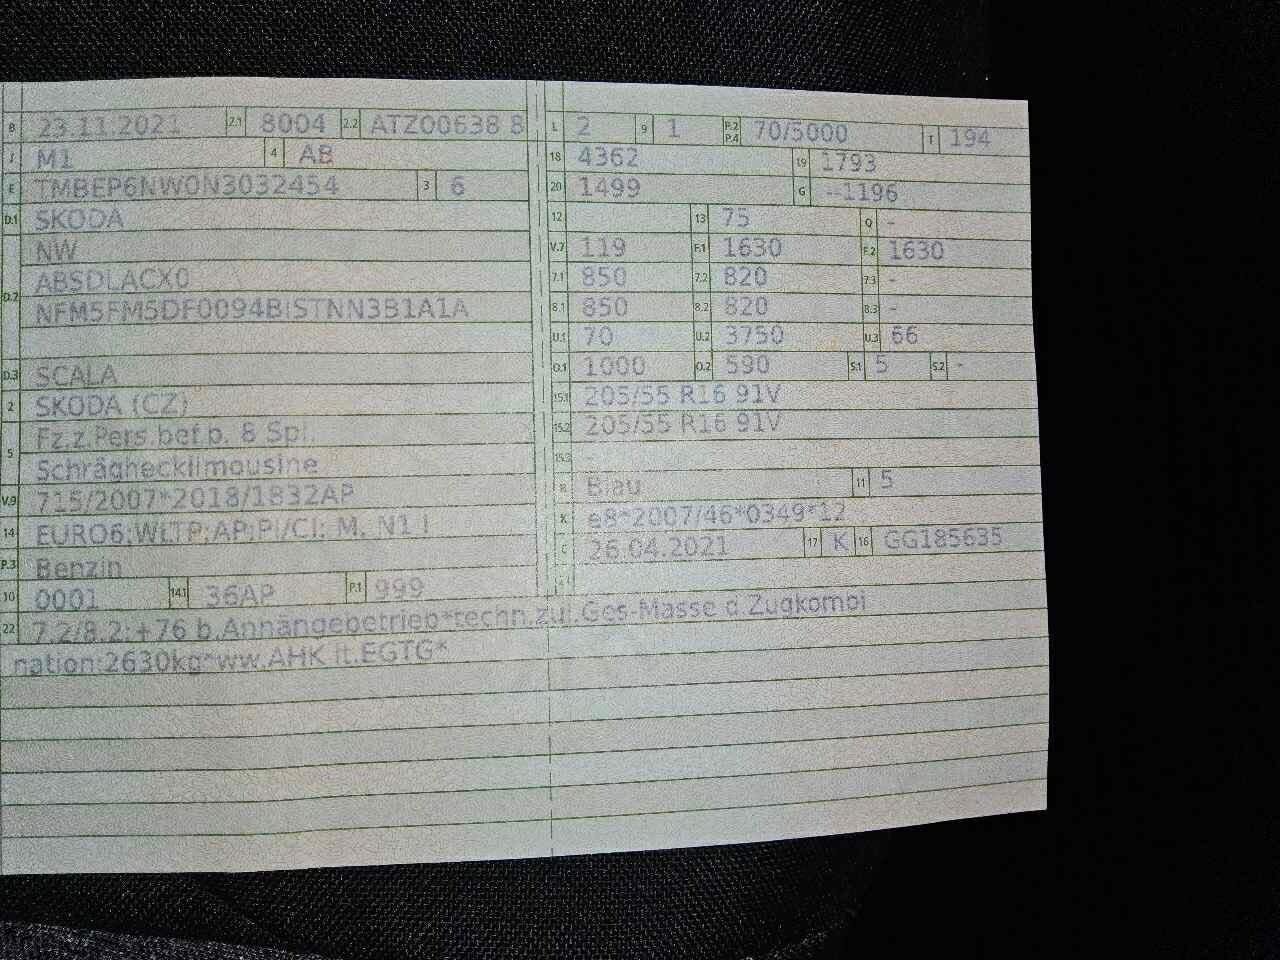 B 23.11.2021 2.1 8004 2.2 ATZ00638 8
J M1 4 AB
E TMBEP6NW0N3032454 3 6
D.1 SKODA
D.2 NW
ABSDLACX0
NFM5FM5DF0094BISTNN3B1A1A
D.3 SCALA
2 SKODA (CZ)
5 Fz.z.Pers.bef.b. 8 Spl.
Schräghecklimousine
V.9 715/2007*2018/1832AP
14 EURO6;WLTP;AP;PI/CI; M, N1 I
P.3 Benzin
10 0001 14.1 36AP P.1 999
L 2 9 1 P.2 P.4 70/5000 T 194
18 4362 19 1793
20 1499 G --1196
12 13 75 Q -
V.7 119 F.1 1630 F.2 1630
7.1 850 7.2 820 7.3 -
8.1 850 8.2 820 8.3 -
U.1 70 U.2 3750 U.3 66
O.1 1000 O.2 590 S.1 5 S.2 -
15.1 205/55 R16 91V
15.2 205/55 R16 91V
15.3 -
R Blau 11 5
K e8*2007/46*0349*12
6 26.04.2021 17 K 16 GG185635
22 7.2/8.2:+76 b.Anhängebetrieb*techn.zul.Ges-Masse d.Zugkombi
nation:2630kg*ww.AHK lt.EGTG*